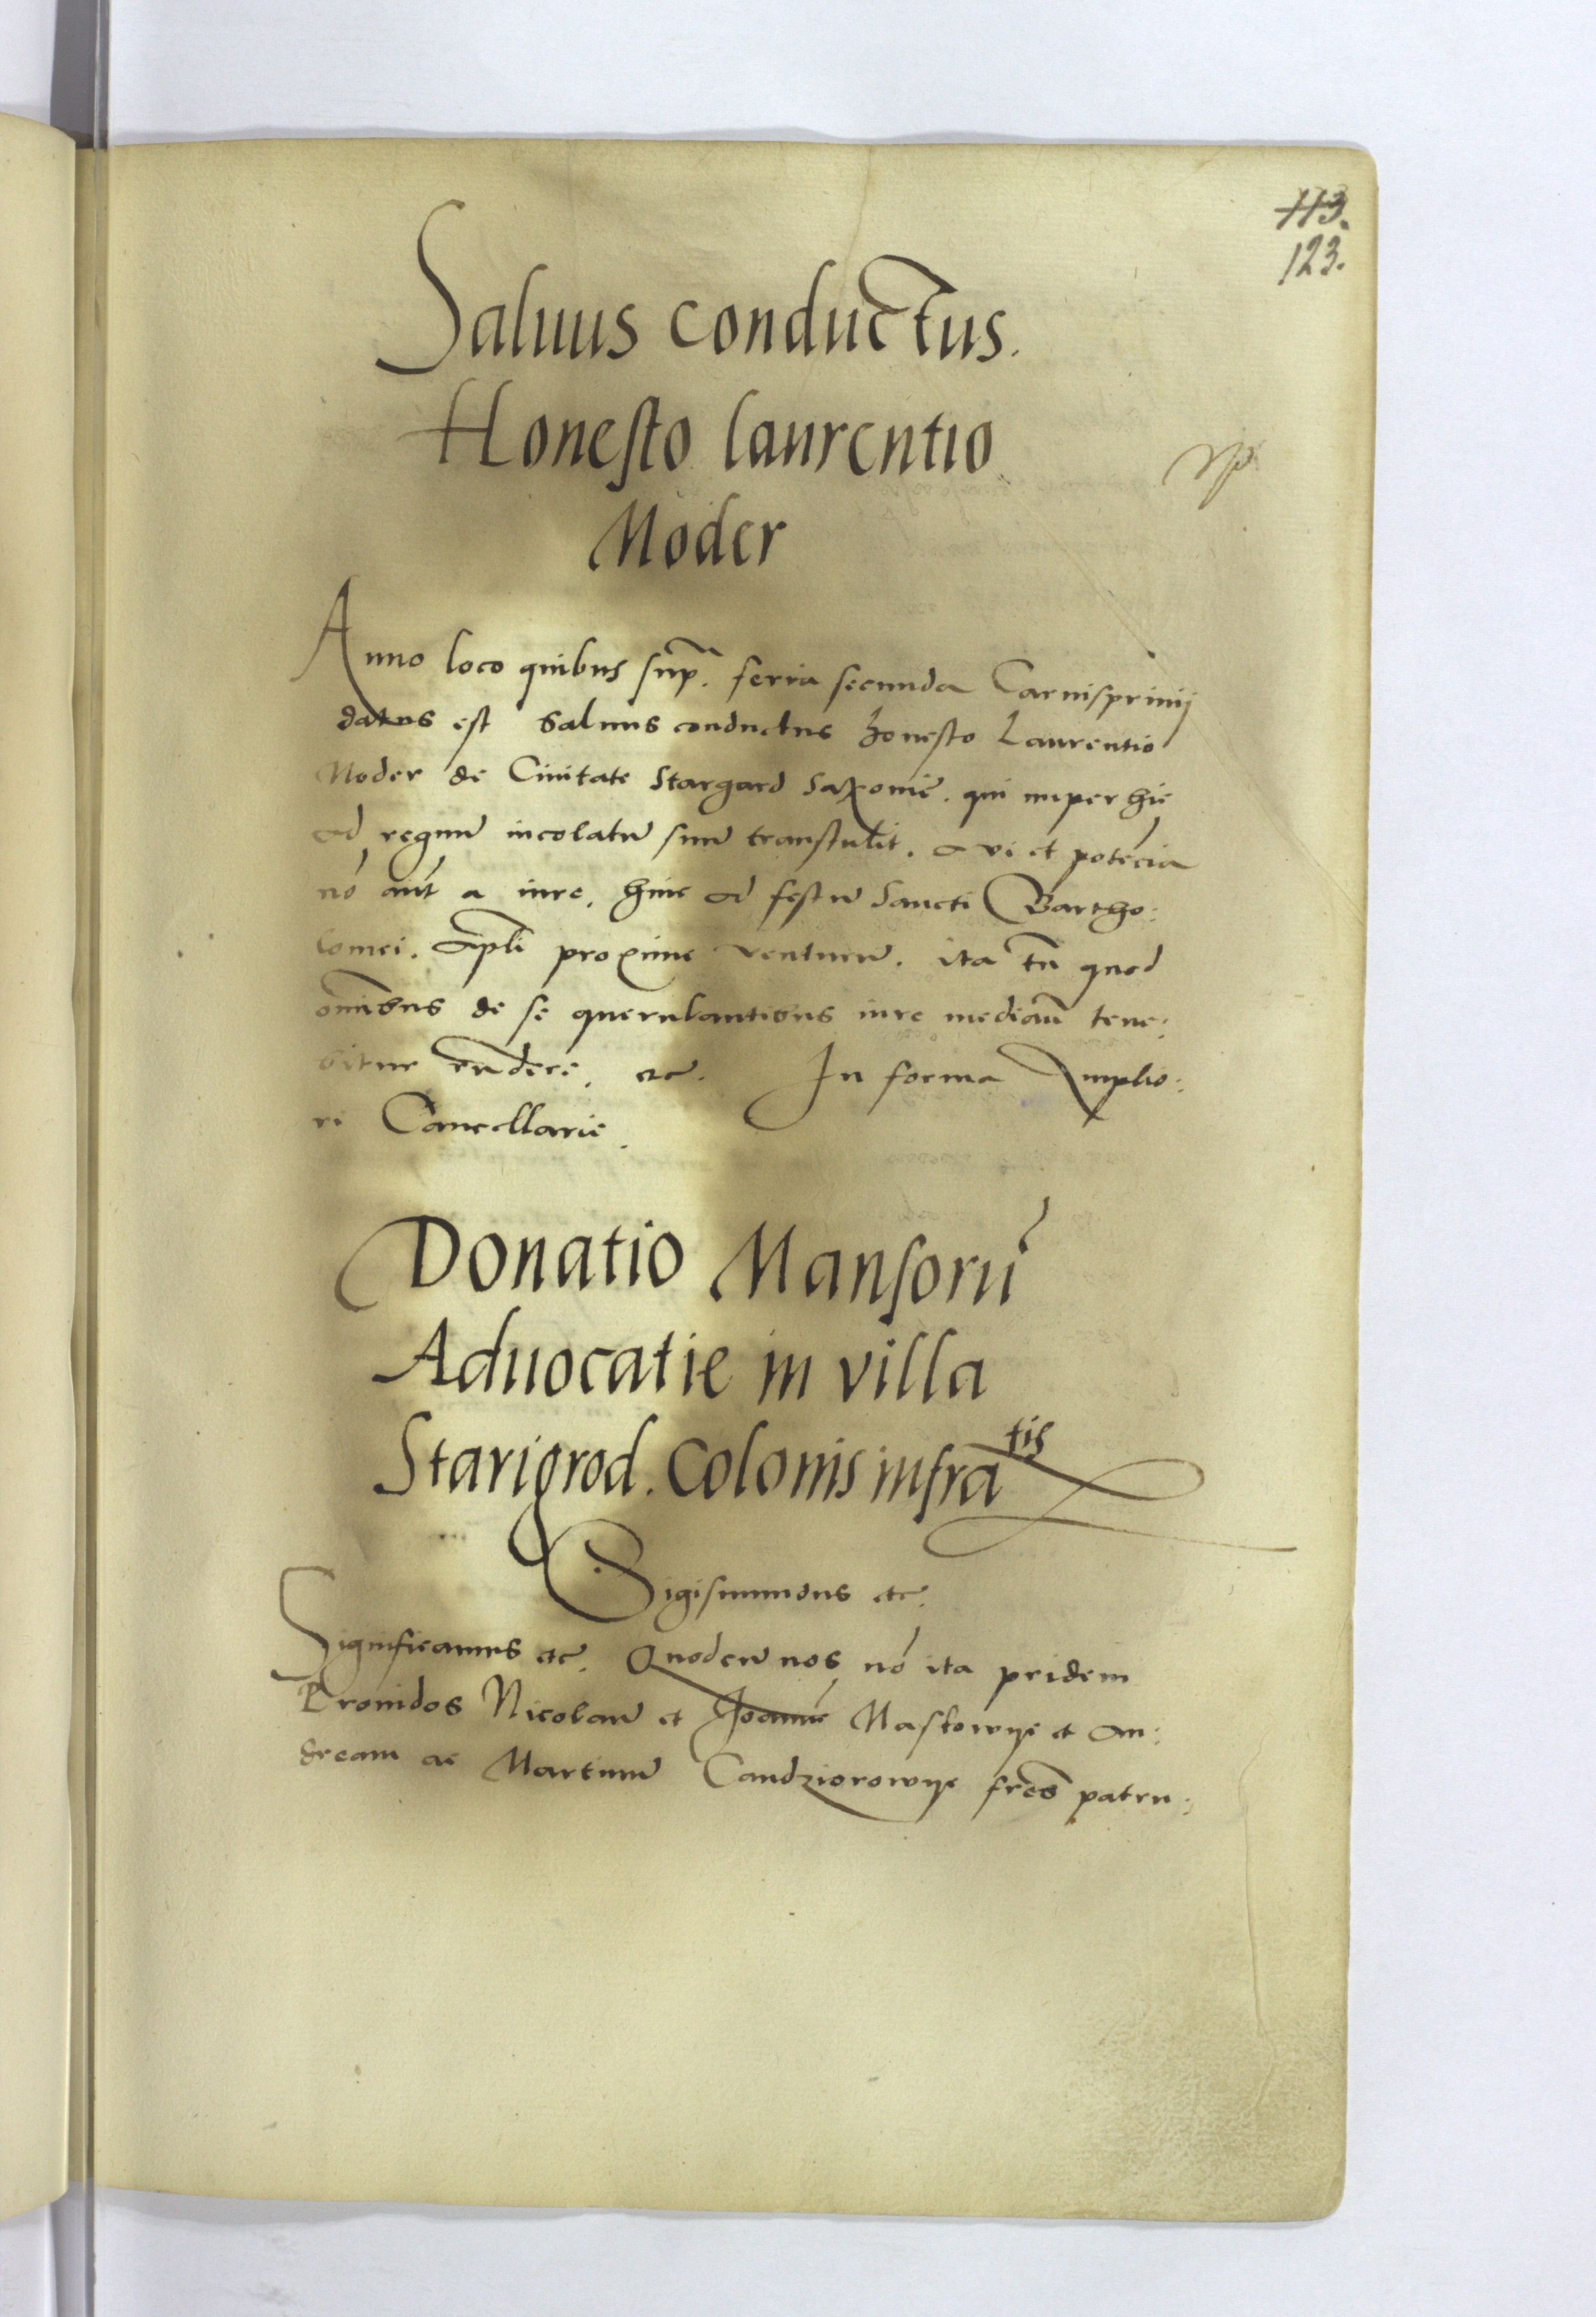 113.
123.
Saluus conductus.
Honesto laurentio
Moder
Anno loco quibus sup̃. feria secunda Carnispriuij
datus est saluus conductus honesto Laurentio
Moder de Ciuitate Stargard Saxonie. qui nuper huc
ad regnũ incolatũ suũ transtulit. a vi et potẽcia
nõ aũt a iure, hinc ad festũ Sancti Bartho:
lomei. Apl̃i proxime venturũ. ita tñ quod
om̃ibus de se querulantibus iure mediañ tene:
bitur rñdere, etc. In forma Amplio:
ri Cancellarie.
Donatio Mansorũ
Aduocatie in villa
Starigrod. Colonis infra tis
Sigismundus etc.
Significamus etc. Quodcũ nos nõ ita pridem
Prouidos Nicolaũ et Joannẽ Maslowye et An:
dream ac Martinũ Candziorowye fr̃es patru: